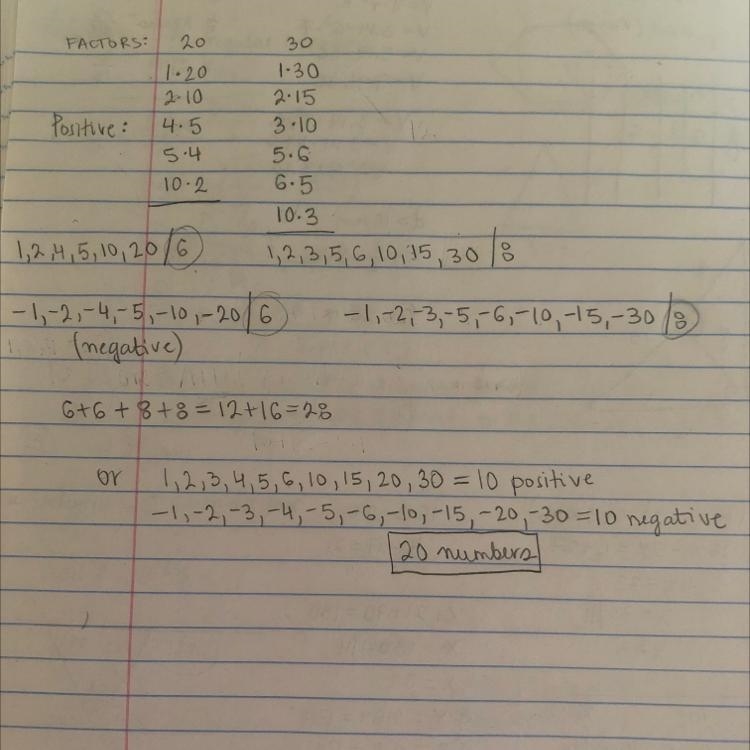 FACTORS: 20 30
1·20 1·30
2·10 2·15
Positive: 4·5 3·10
5·4 5·6
10·2 6·5
10·3
1,2,4,5,10,20/6 1,2,3,5,6,10,15,30/8
-1,-2,-4,-5,-10,-20/6 -1,-2,-3,-5,-6,-10,-15,-30/8
(negative)
6+6+8+8=12+16=28
or 1,2,3,4,5,6,10,15,20,30 = 10 positive
-1,-2,-3,-4,-5,-6,-10,-15,-20,-30 = 10 negative
20 numbers